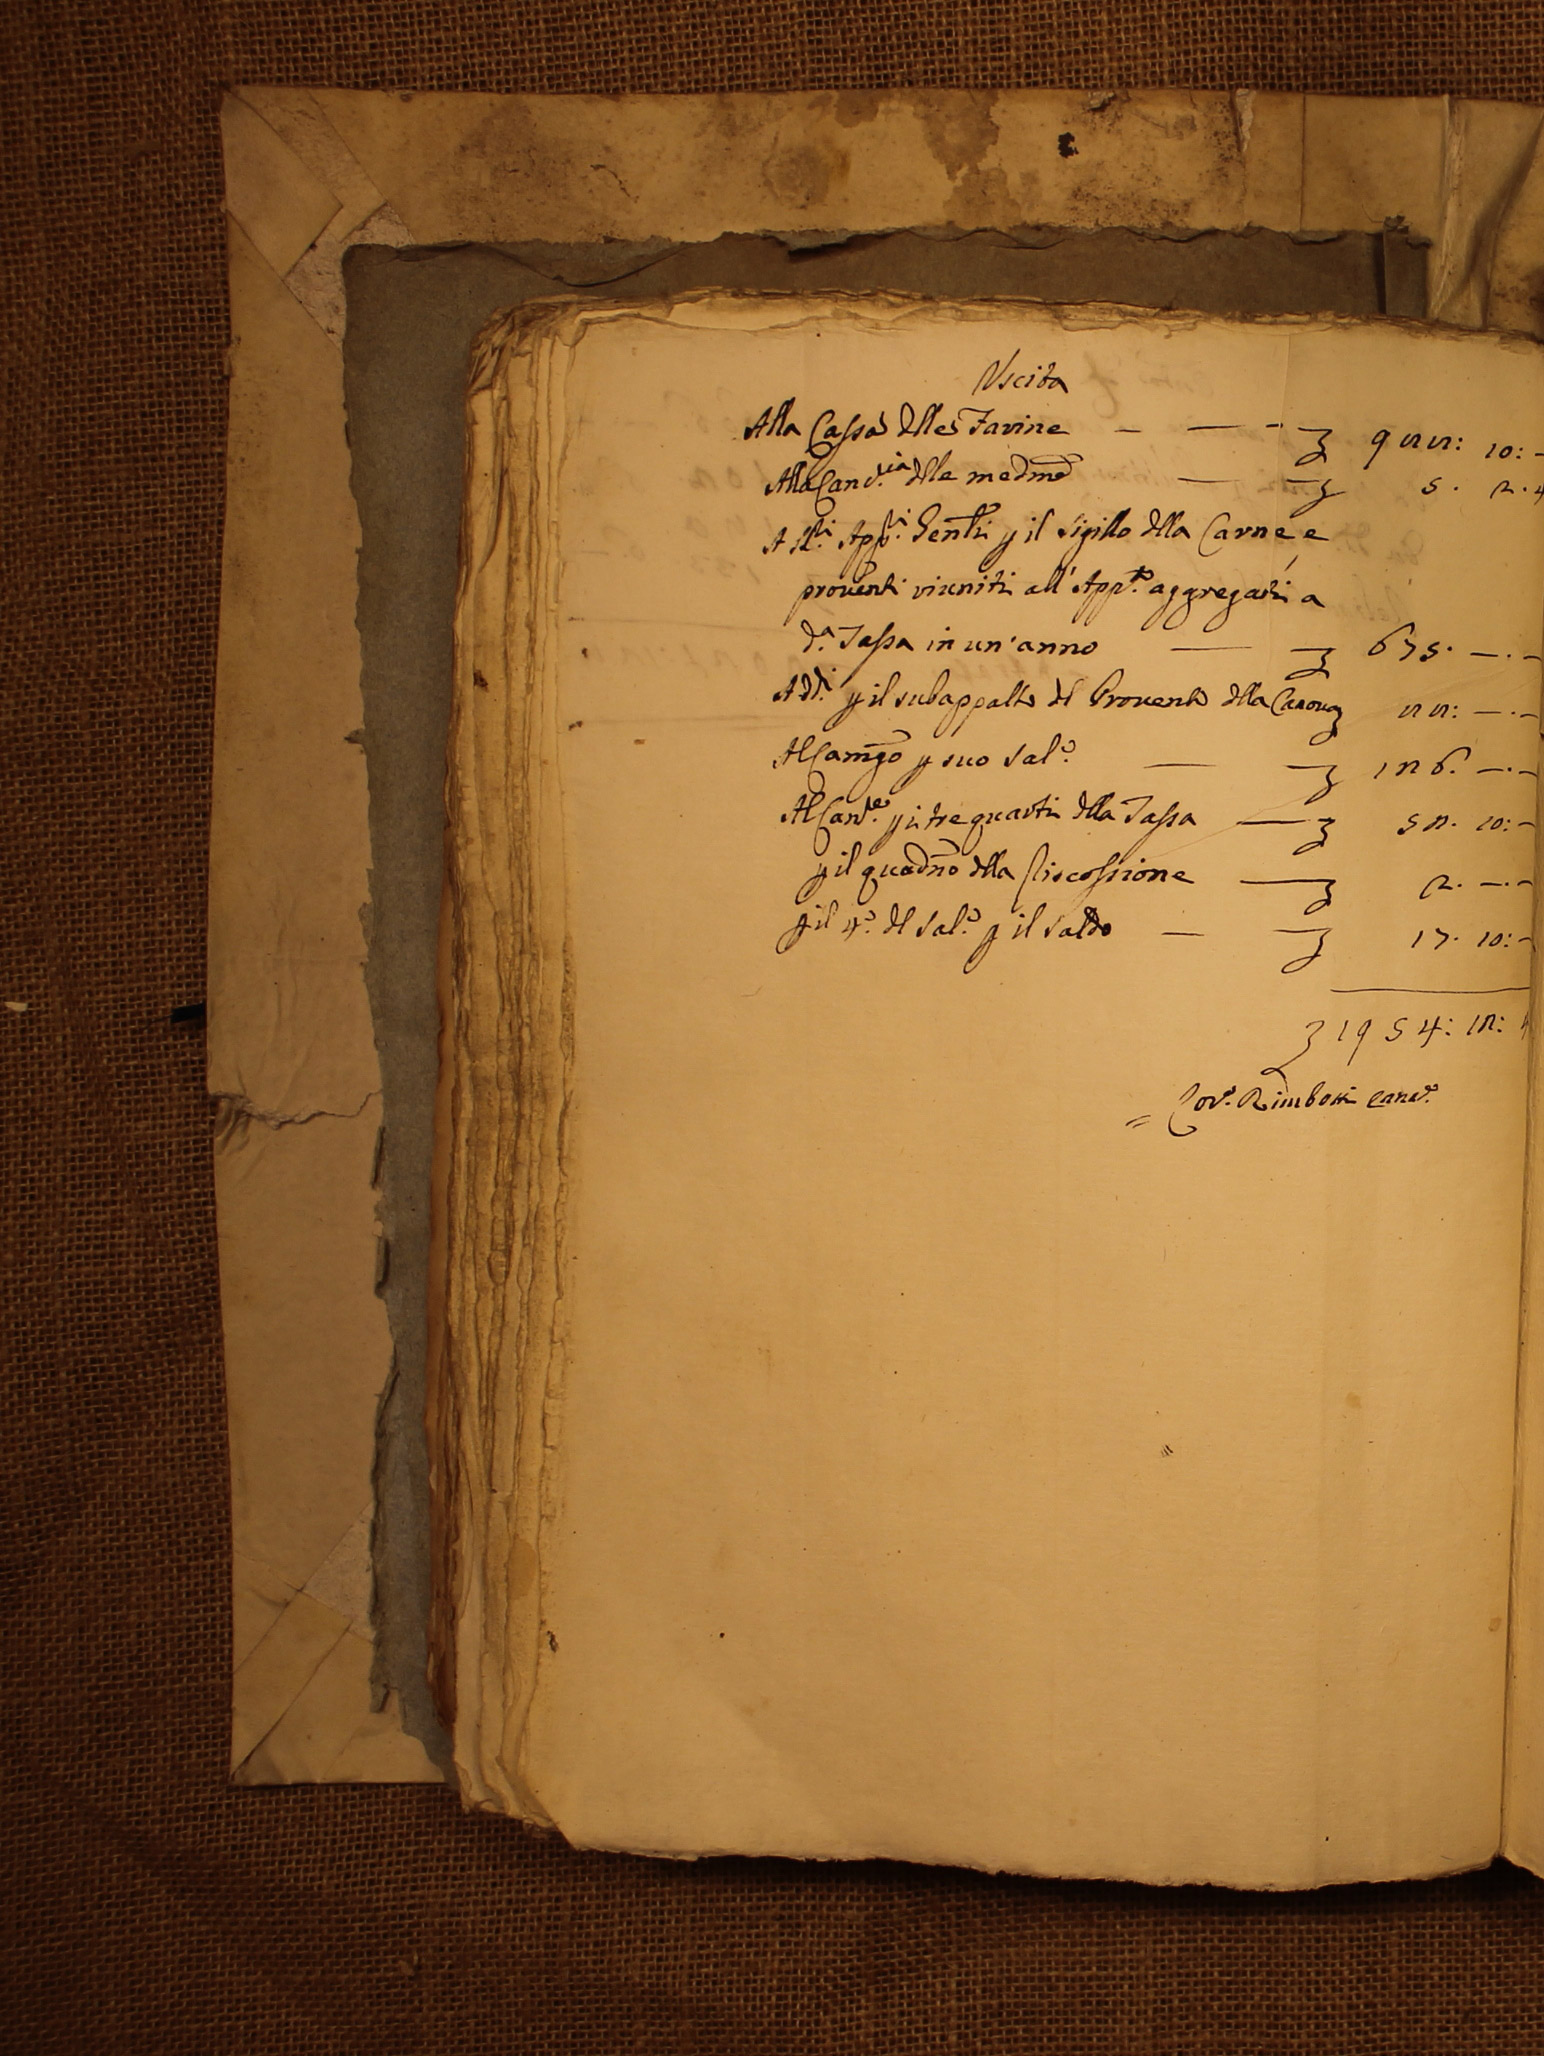 Uscita
Alla Cassa delle Farine — — - ʒ 922: 10: -
Alla Canc.ria delle medme — - ʒ 5. 2. 4
A dd.ti App.ri Genli p il Sigillo dlla Carne, e
proventi riuniti all'App.to aggregati a
d.a Tassa in un'anno — — ʒ 675. —.—
A dd.i p il subappalto dl Provento dlla Canova ʒ 22: —.—
Al Camgo p suo sal.o — — ʒ 126. —.—
Al Canc.re p i tre quarti dlla Tassa — ʒ 52. 10: -
p il quadno dlla Riscossione — ʒ 2. —.—
p il 4.o dl sal.o p il saldo — — ʒ 17. 10: -
ʒ 1954: 12: 4
= Rimbotti Canc.e